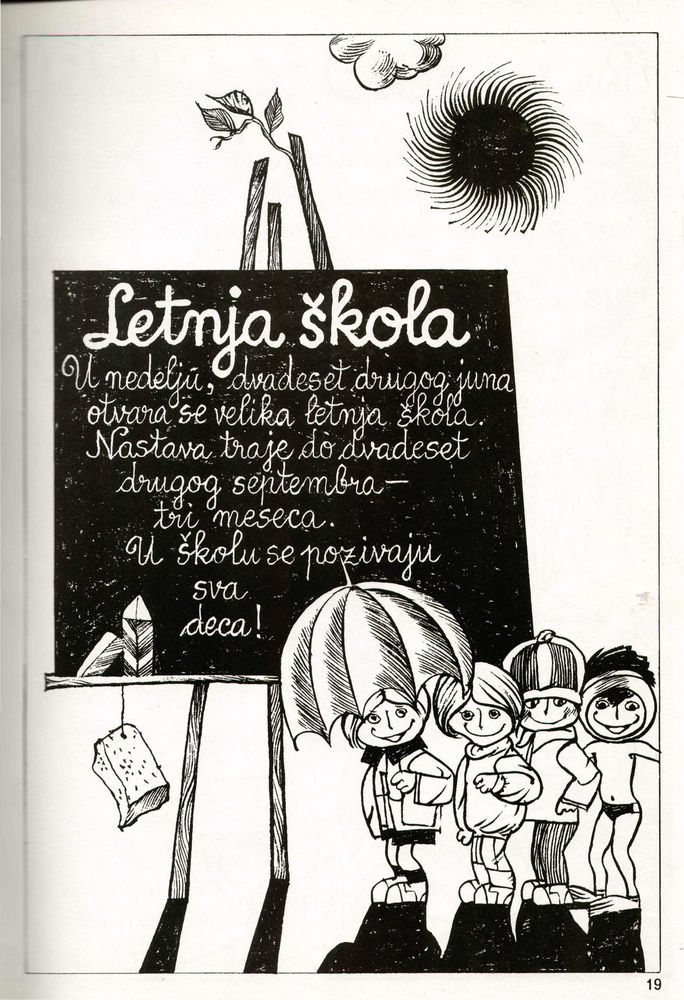 Letnja škola
U nedelju, dvadeset drugog juna
otvara se velika letnja škola.
Nastava traje do dvadeset
drugog septembra —
tri meseca.
U školu se pozivaju
sva
deca!
19